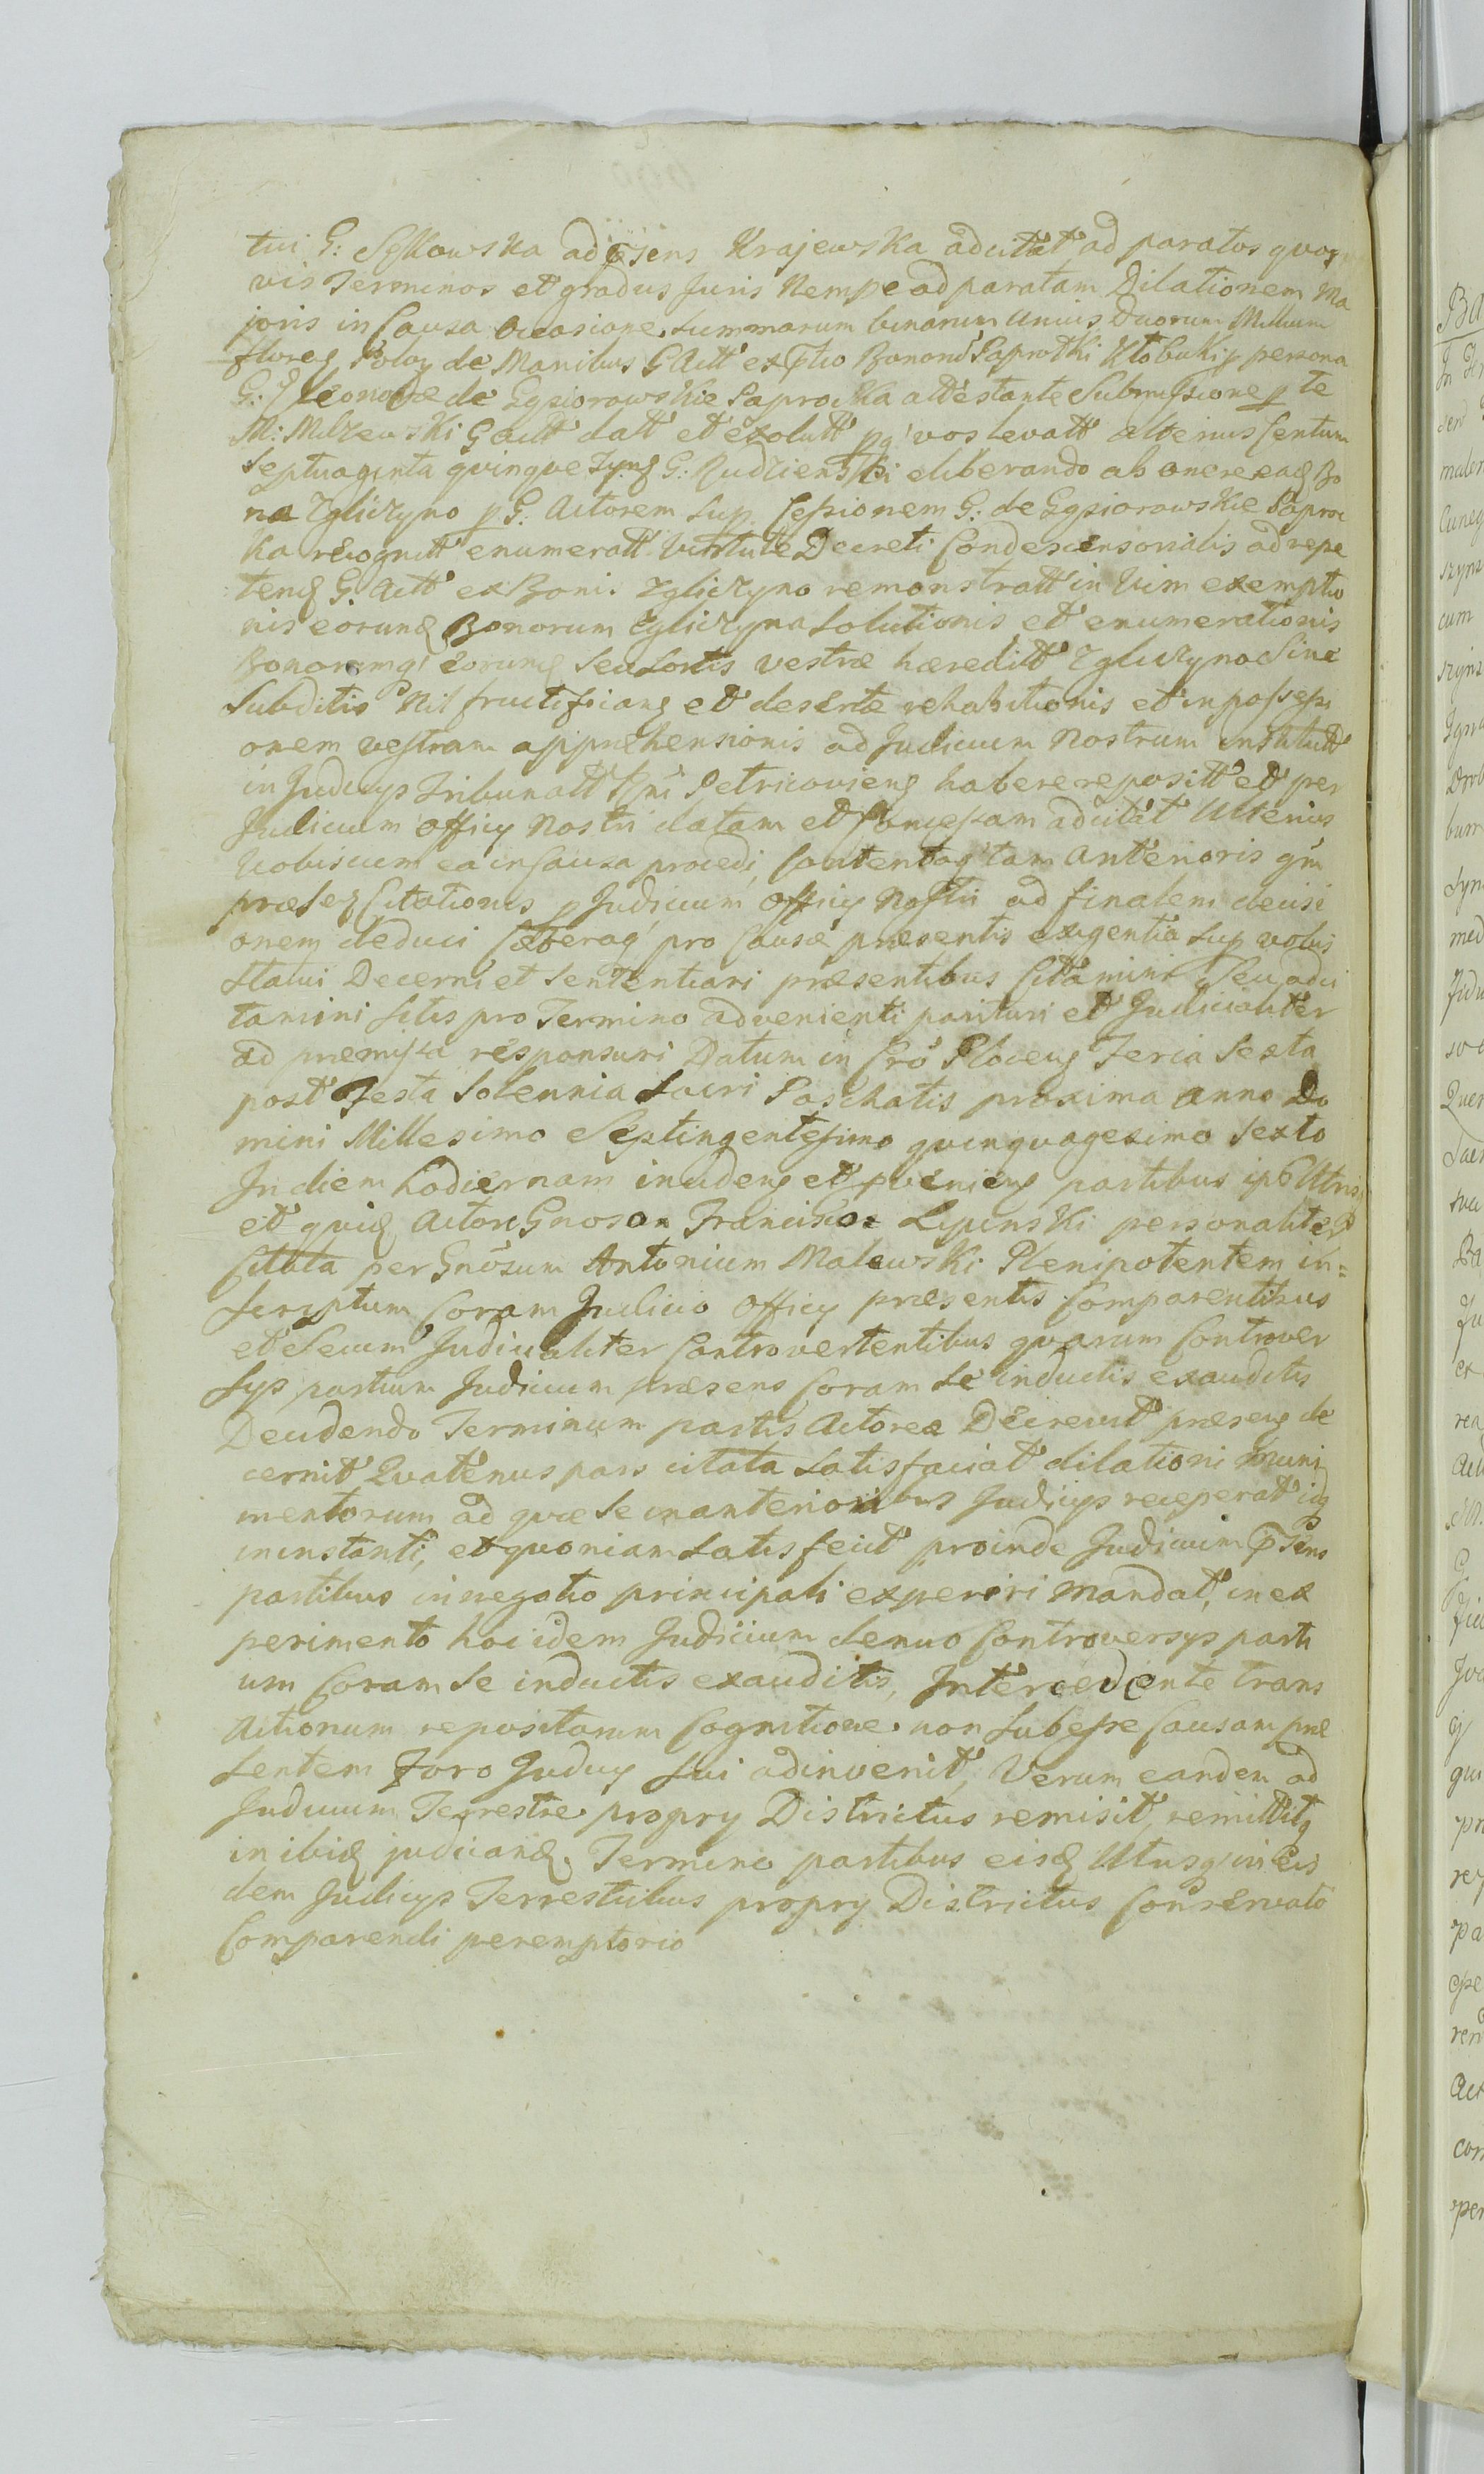 tui G: Sękowska ad psens Krajewska adcitat ad paratos quos
vis Terminos et gradus Juris Nempe ad paratam Dilationem Ma
joris in Causa Occasione Summarum binarum Unius Duorum Millium
floreg Polog de Manibus G Actt ex Bonorum Paprotki Kłobuki p persona
G: Eleonoræ de Gąsiorowskie Paprocka attestante Submissione p te
M: Milzewski G actt datt et exolutt pq vos levatt alterius Centum
Septuaginta quinque Tyng G: Rudzienski eliberando ab onere eadg Bo
na Zgliczyno p G: Actorem Sup Cessionem G: de Gąsiorowskie Paproc
ka recognitt enumeratt Virtute Decreti Condescensorialis ad repe
teng G: Actt ex Bonis Zgliczyno remonstratt in Vim exemptio
nis eorung Bonorum Zgliczyna Solutionis et enumerationis
Bonorumq eorung Seu Sortis vestræ hæreditt Zgliczyno Sine
Subditis Nil fructificang et desertæ rehabitionis et in possessi
onem vestram apprehensionis ad Judicium Nostrum institutt
in Judicys Tribunatt Rni Petricovieng habere repositt et per
Judicium Officy Nostri datam et Concessam adcitat Ulterius
Vobiscum ea in Causa procedi, Contentaq tam Anterioris qm
præseg Citationis p Judicium Officy Nostri ad finalem decisi
onem deduci Cæteraq pro Causæ præsentis exigentia Sup vobis
Statui Decerni et Sententiari præsentibus Cittamini Seu adci
tamini Sitis pro Termino advenienti parituri et Judicialiter
ad præmissa responsuri Datum in Cro Ploceng Feria Sexta
post Festa Solennia Sacri Paschatis proxima Anno Do
mini Millesimo Septingentesimo quinquagesimo Sexto
In diem hodiernam incideng et pvenieng partibus ipis Utris
et quid Actore Gnoso Francisco Lipinski personaliter
Citata per Gnosum Antonium Malewski Plenipotentem in=
Scriptum Coram Judicio Officy præsentis Comparentibus
et Secum Judicialiter Controvertentibus quarum Controver
Sys partium Judicium præsens Coram Se inductis exauditis
Decidendo Terminum partis Actoreæ Decrevit præseng de
cernit Quatenus pars citata Satisfaciat dilationi Muni
mentorum ad quæ Se in anterioribus Judicys receperat idq
in instanti, et quoniam Satisfecit proinde Judicium psens
partibus in negotio principali experiri Mandat, in ex
perimento hoc idem Judicium denuo Controversys parti
um Coram Se inductis exauditis, Intercedente trans
Actionum repositarum Cognitione non Subesse Causam præ
Sentem Foro Judicy Sui adinvenit, Verum eandem ad
Judicium Terrestre propry Districtus remisit, remittitq
in ibid judicang Termino partibus eisd Utrisq in eis
dem Judicys Terrestribus propry Districtus Conservato
Comparendi peremptorio